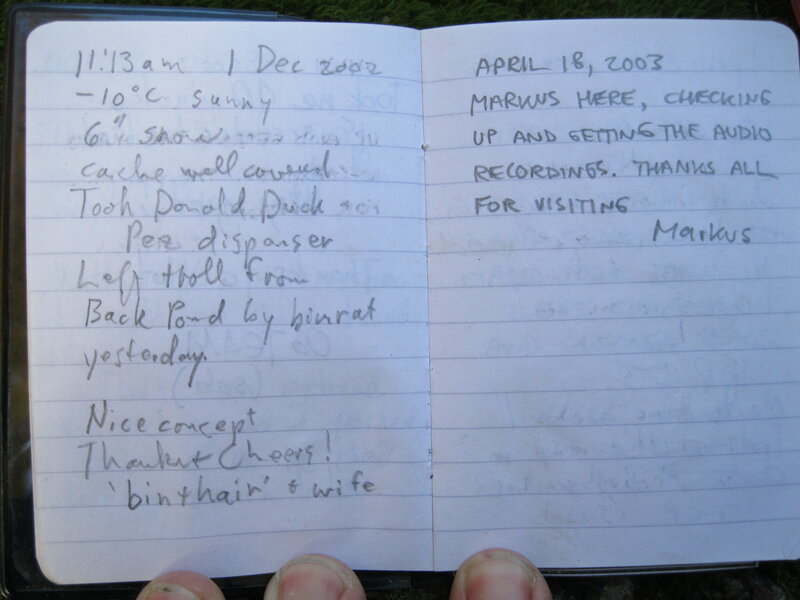 11:13 am 1 Dec 2002
-10°C sunny
6" snow
cache well covered
Took Donald Duck
Pez dispenser
Left troll from
Back Pond by binrat
yesterday.
Nice concept
Thanks + Cheers!
'binthair' & wife
APRIL 18, 2003
MARKUS HERE, CHECKING
UP AND GETTING THE AUDIO
RECORDINGS. THANKS ALL
FOR VISITING
Markus